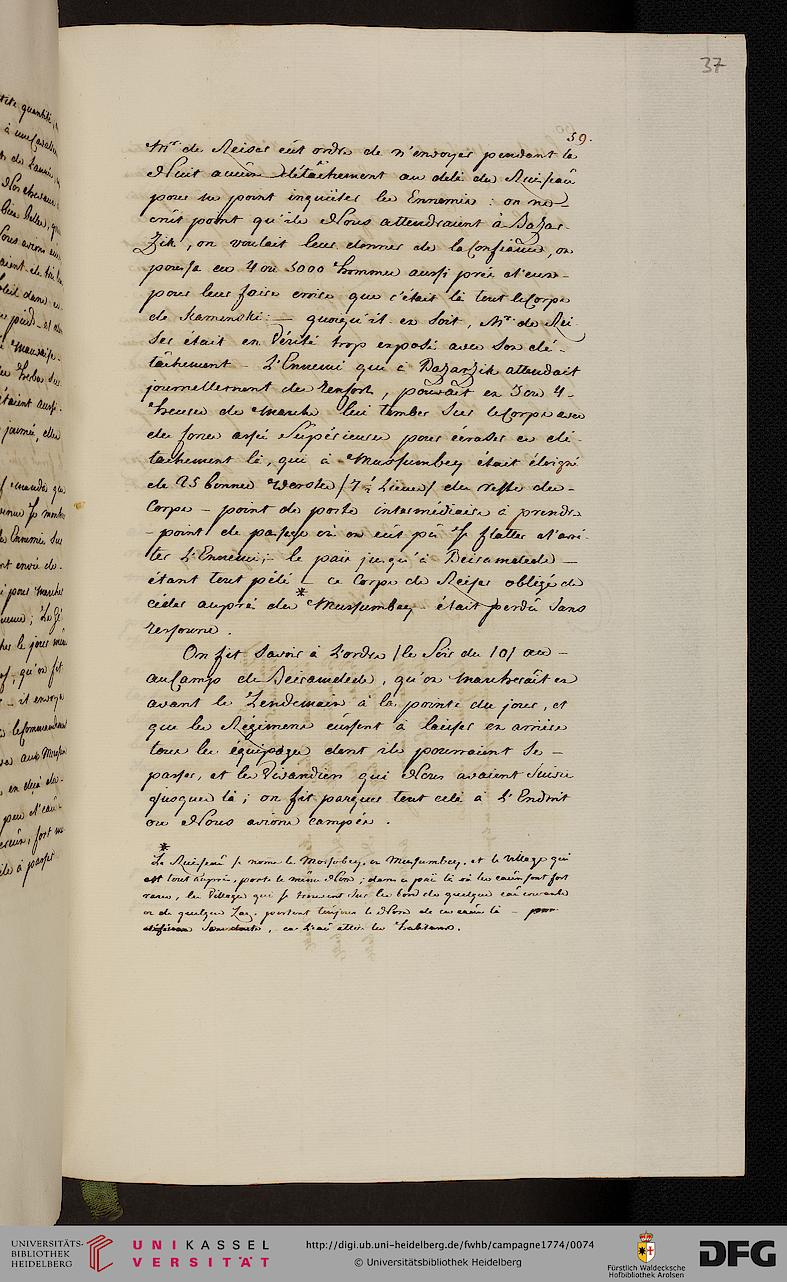 37
59.
Mr. de Reiser eut ordre de n'envoyer pendant la
Nuit aucun détachement au delà du Ruisseau
pour ne point inquiéter les Ennemis : on ne
crût point qu'ils Nous attendraient à Bazar-
Zik, on voulait leur donner de la Confiance, on
poussa ces 4 ou 5000 hommes aussi près d'eux-
pour leur faire croire que c'était là tout le Corps
de Kamenski: — quoiqu'il en soit, Mr. de Rei-
ser était en Vérité trop exposé avec son dé-
tachement - L'Ennemi qui à Bazarzik attendait
journellement des Renforts, pouvait en 3 ou 4-
heures de Marche lui tomber sur le Corps avec
des forces assés Supérieures pour écraser ce dé-
tachement là, qui à Mussumbey était éloigné
de 25 bonnes Werstes /7 ½ Lieues/ du reste du-
Corps - point de poste intermédiaire à prendre
- point de passage où on eût pû se flatter d'arrê-
ter L'Ennemi;- le païs jusqu'à Beiramdede —
étant tout pélé — ce Corps de Reiser obligé de
céder auprès du * Mussumbey était perdû sans
ressource.
On fit savoir à L'ordre /le Soir du 10/ au-
au Camp de Beiramdede, qu'on marcherait en
avant le Lendemain à la pointe du jour, et
que les Régimens eussent à laisser en arrière
tous les équipages dont ils pourraient se -
passer, et les Vivandiers qui Nous avaient suivi
jusques là; on fit parquer tout cela à L'Endroit
où Nous avions campés.
*
Le Ruisseau se nome le Mossubey, ou Mussumbey, et le Village qui
est tout auprès, porte le même Nom ; dans ce païs là où les eaux sont fort
rares, les Villages qui se trouvent sur les bord de quelque eau courante
ou de quelque Lac, portent toujours le Nom de ces eaux là -
, ce L'eau attire les habitans.
UNIVERSITÄTS-
BIBLIOTHEK
HEIDELBERG
UNIKASSEL
VERSITÄT
http://digi.ub.uni-heidelberg.de/fwhb/campagne1774/0074
© Universitätsbibliothek Heidelberg
Fürstlich Waldecksche
Hofbibliothek Arolsen
DFG